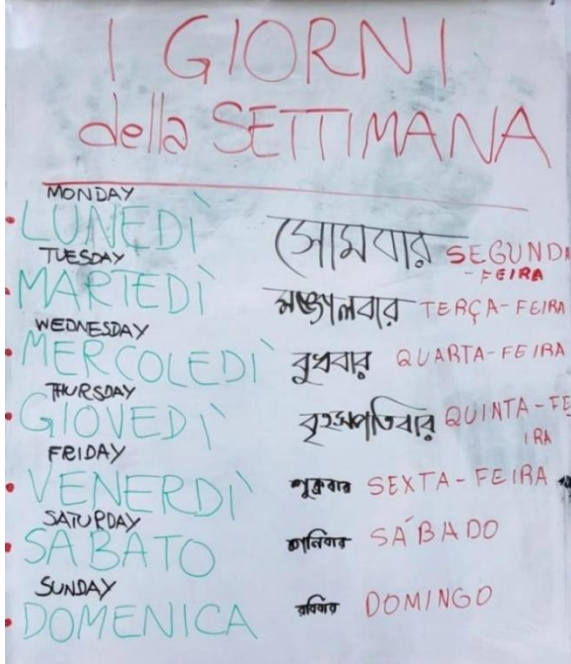 I GIORNI
della SETTIMANA
MONDAY
LUNEDÌ সোমবার SEGUNDA
-FEIRA
TUESDAY
MARTEDÌ মঙ্গলবার TERÇA-FEIRA
WEDNESDAY
MERCOLEDÌ বুধবার QUARTA-FEIRA
THURSDAY
GIOVEDÌ বৃহস্পতিবার QUINTA-FE
IRA
FRIDAY
VENERDÌ শুক্রবার SEXTA-FEIRA
SATURDAY
SABATO শনিবার SÁBADO
SUNDAY
DOMENICA রবিবার DOMINGO